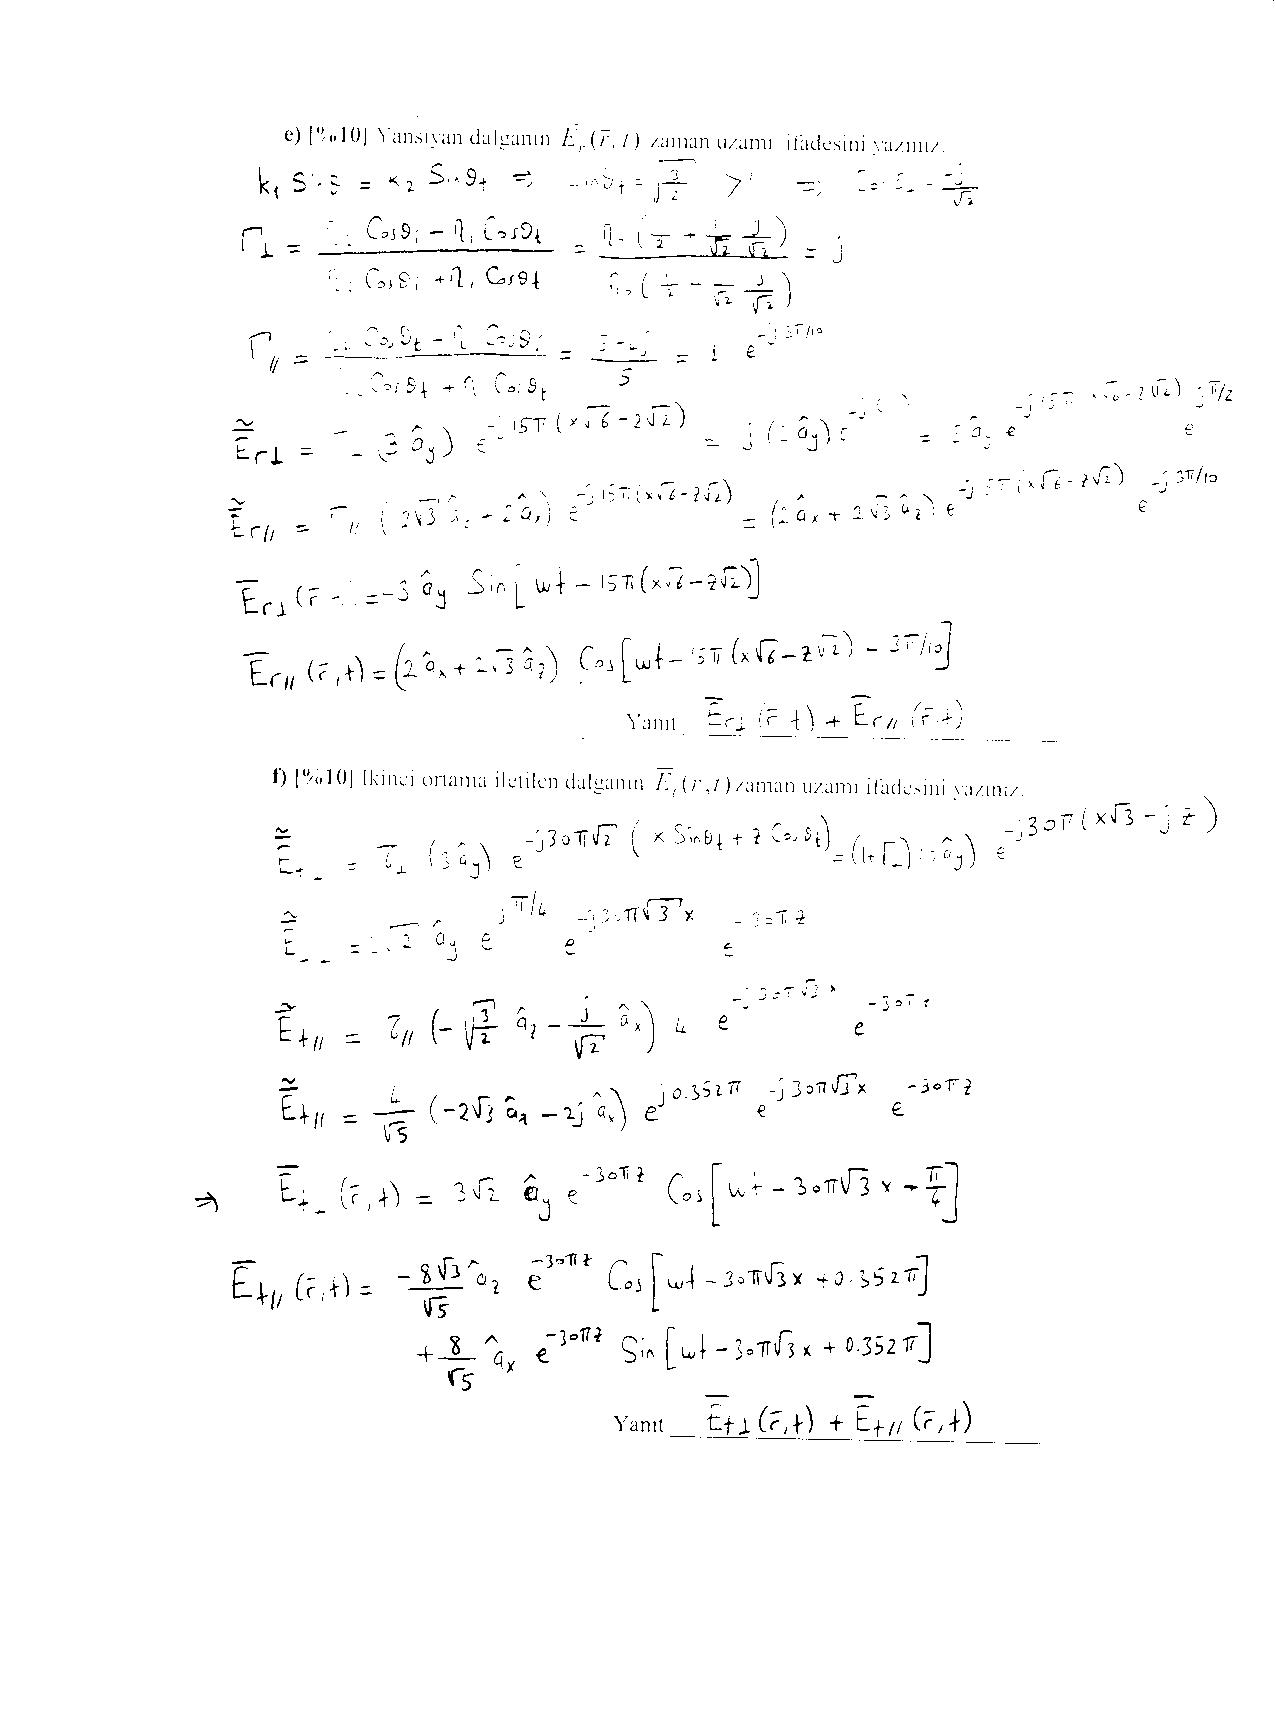 e) [%10] Yansıyan dalganın E_r(r̄,t) zaman uzamı ifadesini yazınız.
k₁ Sin = k₂ Sinθt ⇒ Sinθt = √(3/2) > ⇒ -j/√2
Γ⊥ = (Cosθi − η₁ Cosθt)/(Cosθi + η₁ Cosθt) = (1/2 + 1/√2 j/√2)/(1/2 − 1/√2 j/√2) = j
Γ// = (Cosθt − η Cosθi)/(Cosθt + η Cosθt) = /5 = e^(-j3π/10)
Ẽr⊥ = (3 ây) e^(-j15π(x√6−z√2)) = j(3ây) e = 3ây e^(-j15π(x√6−z√2)) e^(jπ/2)
Ẽr// = Γ// (2√3 âz − 2âx) e^(-j15π(x√6−z√2)) = (2âx + 2√3 âz) e^(-j15π(x√6−z√2)) e^(-j3π/10)
Ēr⊥(r̄ = −3 ây Sin[wt − 15π(x√6−z√2)]
Ēr//(r̄,t) = (2âx + 2√3 âz) Cos[wt − 15π(x√6−z√2) − 3π/10]
Yanıt Ēr⊥(r̄,t) + Ēr//(r̄,t)
f) [%10] İkinci ortama iletilen dalganın Ē_t(r,t) zaman uzamı ifadesini yazınız.
Ẽt = τ⊥ (3ây) e^(-j30π√2 (x Sinθt + z Cosθt)) = (1+Γ)(3ây) e^(-j30π(x√3 − jz))
Ẽ = √2 ây e^(jπ/4) e^(-j30π√3x) e^(-30πz)
Ẽt// = τ// (−√(3/2) âz − j/√2 âx) 4 e^(-j30π√3x) e^(-30πz)
Ẽt// = 4/√5 (−2√3 âz − 2j âx) e^(j0.352π) e^(-j30π√3x) e^(-30πz)
⇒ Ēt (r̄,t) = 3√2 ây e^(-30πz) Cos[wt − 30π√3 x + π/4]
Ēt//(r̄,t) = −8√3/√5 âz e^(-30πz) Cos[wt − 30π√3x + 0.352π]
+ 8/√5 âx e^(-30πz) Sin[wt − 30π√3x + 0.352π]
Yanıt Ēt⊥(r̄,t) + Ēt//(r̄,t)